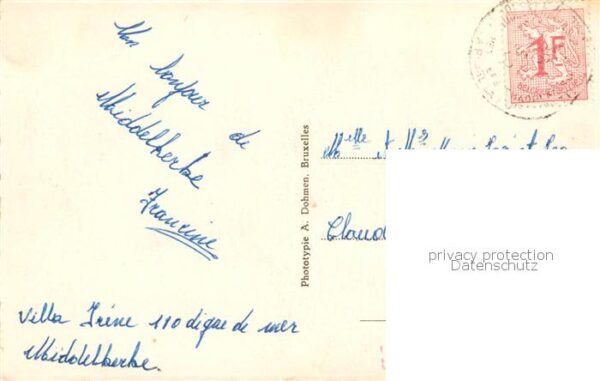 Un bonjour de
Middelkerke
Francine
Villa Irène 110 digue de mer
Middelkerke.
Phototypie A. Dohmen, Bruxelles
1F
Melle et Mr
Claud
privacy protection
Datenschutz